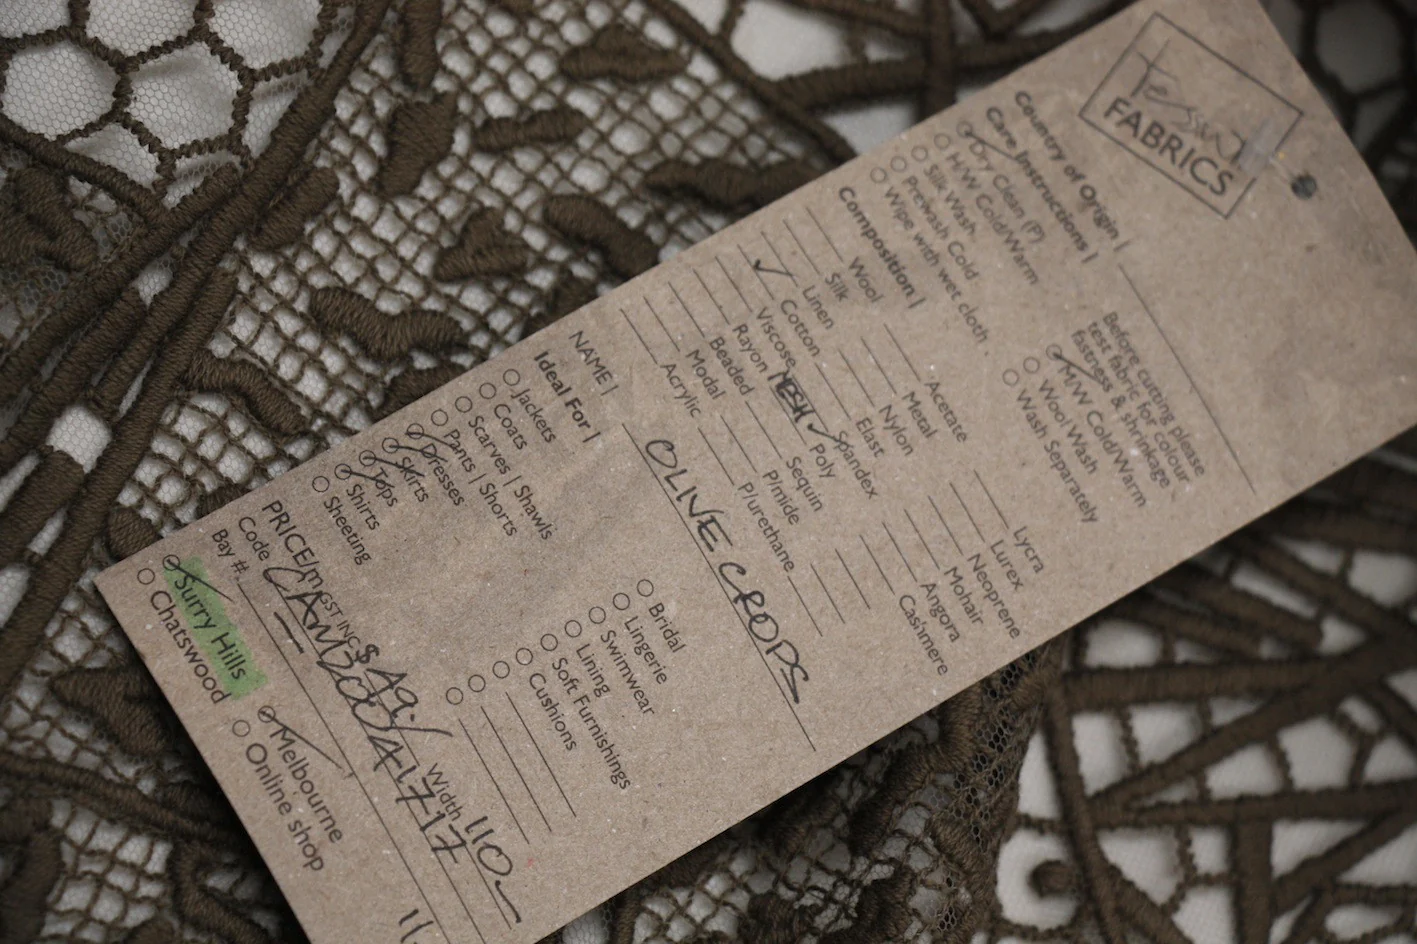 Tessuti
FABRICS
Country of Origin |
Care Instructions |
Dry Clean (P)
H/W Cold/Warm
Silk Wash
Prewash Cold
Wipe with wet cloth
Before cutting please
test fabric for colour
fastness & shrinkage
M/W Cold/Warm
Wool Wash
Wash Separately
Composition |
Wool
Silk
Linen
✓ Cotton
Viscose
Rayon
Beaded
Modal
Acrylic
Acetate
Metal
Nylon
Elast
Spandex
MESH ✓ Poly
Sequin
P/mide
P/urethane
Lycra
Lurex
Neoprene
Mohair
Angora
Cashmere
NAME | OLIVE CROPS
Ideal For |
Jackets
Coats
Scarves | Shawls
Pants | Shorts
Dresses
Skirts
Tops
Shirts
Sheeting
Bridal
Lingerie
Swimwear
Lining
Soft Furnishings
Cushions
PRICE/m GST INC $ 49.- Width 110
Code
Bay #
Surry Hills
Chatswood
Melbourne
Online shop